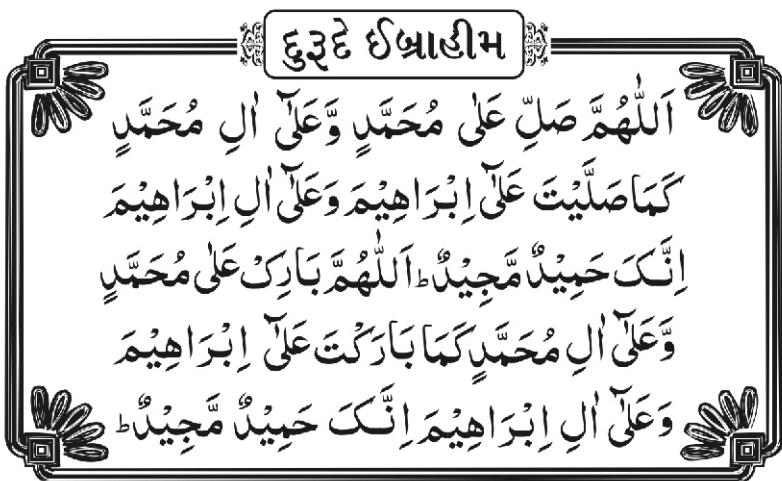 દુરૂદે ઈબ્રાહીમ
اَللّٰهُمَّ صَلِّ عَلٰى مُحَمَّدٍ وَّعَلٰٓى اٰلِ مُحَمَّدٍ
كَمَا صَلَّيْتَ عَلٰٓى اِبْرَاهِيْمَ وَعَلٰٓى اٰلِ اِبْرَاهِيْمَ
اِنَّکَ حَمِيْدٌ مَّجِيْدٌ ؕ اَللّٰهُمَّ بَارِکْ عَلٰى مُحَمَّدٍ
وَّعَلٰٓى اٰلِ مُحَمَّدٍ كَمَا بَارَكْتَ عَلٰٓى اِبْرَاهِيْمَ
وَعَلٰٓى اٰلِ اِبْرَاهِيْمَ اِنَّکَ حَمِيْدٌ مَّجِيْدٌ ؕ